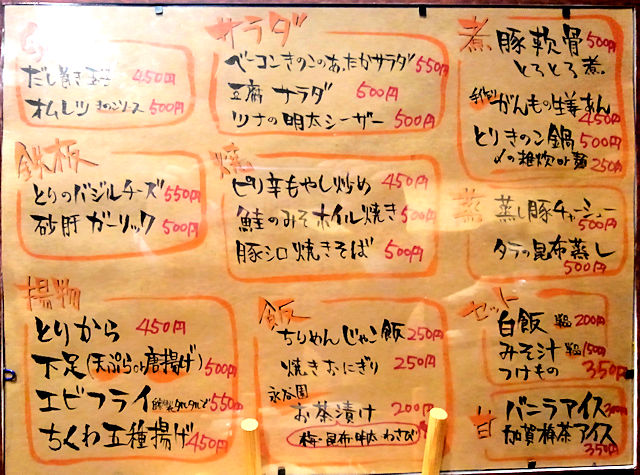 だし巻き玉子 450円
オムレツ きのこソース 500円
サラダ
ベーコンきのこのあったかサラダ 550円
豆腐サラダ 500円
ツナの明太シーザー 500円
煮
豚軟骨 500円
とろとろ煮
がんもの生姜あん
450円
とりきのこ鍋 500円
〆の雑炊or麺 250円
鉄板
とりのバジルチーズ 550円
砂肝ガーリック 500円
焼
ピリ辛もやし炒め 450円
鮭のみそホイル焼き 500円
豚シロ焼きそば 500円
蒸
蒸し豚チャーシュー
500円
タラの昆布蒸し
500円
揚物
とりから 450円
下足(天ぷらor唐揚げ) 500円
エビフライ 550円
ちくわ五種揚げ 450円
飯
ちりめんじゃこ飯 250円
焼きおにぎり 250円
永谷園
お茶漬け 200円
梅・昆布・明太・わさび
セット
白飯 単品 200円
みそ汁 単品 150円
つけもの 350円
甘
バニラアイス 300円
加賀棒茶アイス
350円